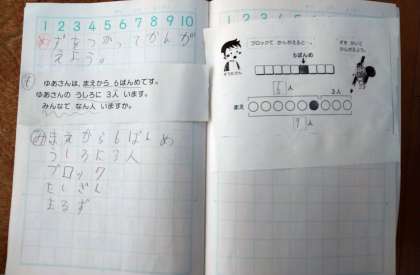 1 2 3 4 5 6 7 8 9 10
め ずをつかってかんが
えよう。
も
ゆあさんは、まえから 6ばんめです。
ゆあさんの うしろに 3人 います。
みんなで なん人 いますか。
み まえから6ばんめ
うしろに3人
ブロック
たしざん
まるず
ブロックで かんがえると、
6ばんめ
6 人
3人
まえ
9 人
ずを かいて
かんがえよう。